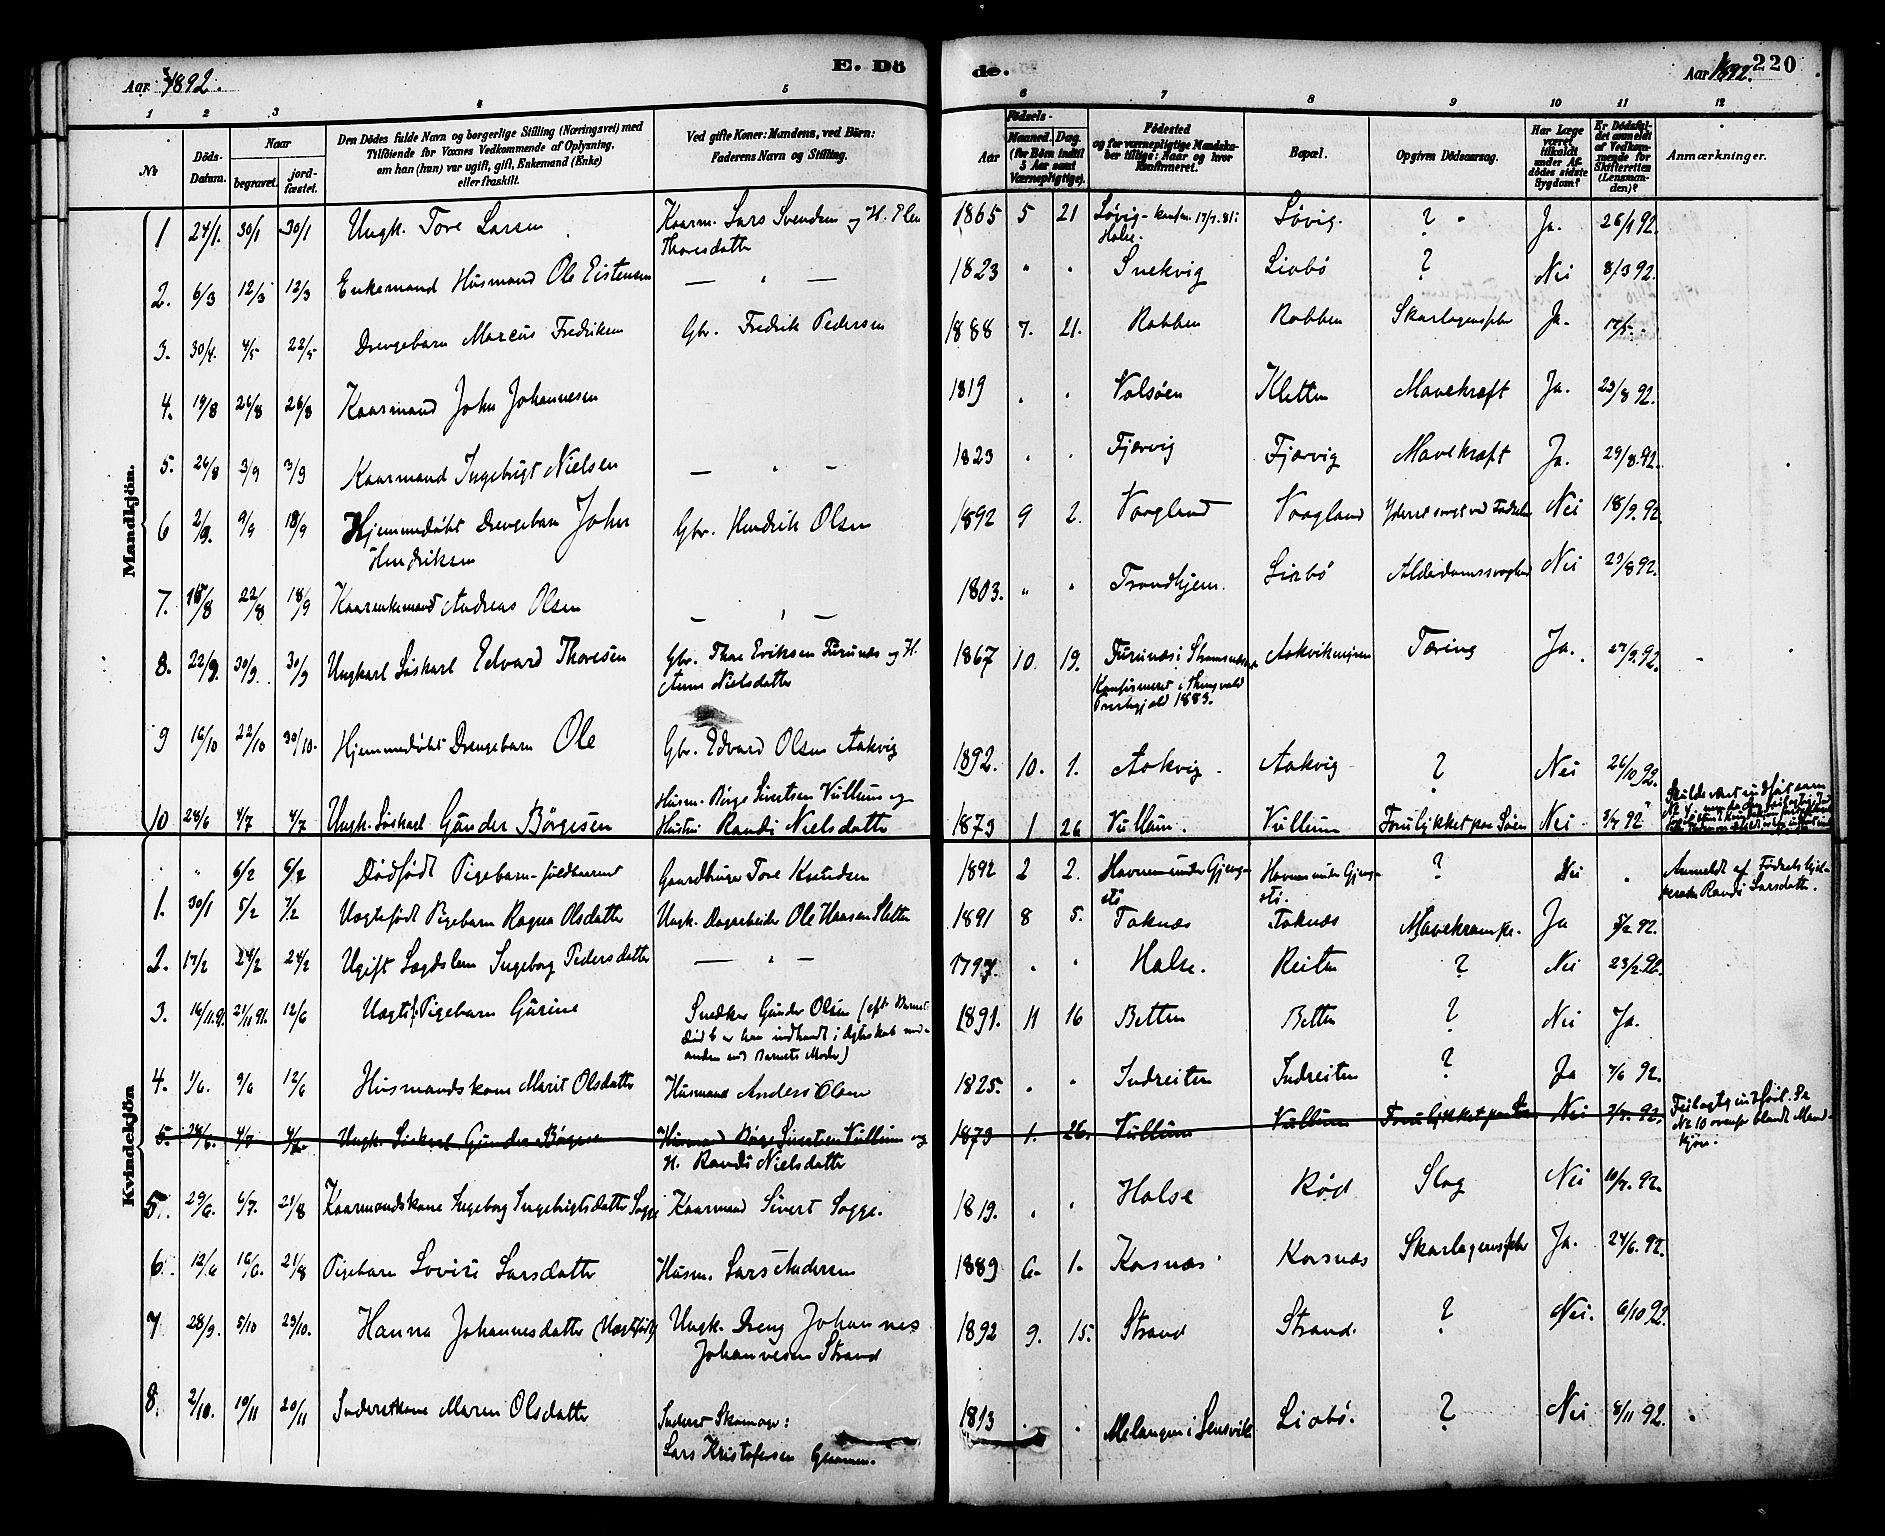 Aar 1892.
E. Dö
de.
Aar 1892.
220
1 2 3 4 5 6 7 8 9 10 11 12
No
Döds-Datum.
Naar
begravet.
jordfæstet.
Den Dödes fulde Navn og borgerlige Stilling (Næringsvei) med
Tilföiende for Voxnes Vedkommende af Oplysning,
om han (hun) var ugift, gift, Enkemand (Enke)
eller fraskilt.
Ved gifte Koner: Mandens, ved Börn:
Faderens Navn og Stilling.
Aar
Födsels-
Maaned. Dag.
(for Börn indtil
5 Aar samt
Værnepligtige).
Födested
og for værnepligtige Mandska-
ber tillige: Naar og hvor
konfirmeret.
Bopæl.
Opgiven Dödsaarsag.
Har Læge
været
tilkaldt
under Af-
dödes sidste
Sygdom?
Er Dödsfal-
det anmeldt
af Vedkom-
mende for
Skifteretten
(Lensman-
den)?
Anmærkninger.
Mandkjön.
1 24/1. 30/1 30/1 Ungk. Tore Larsen Kaarm. Lars Svendsen og H. Elen 1865 5 21 Løvig - konf. 17/7. 81 i Løvig. ? Ja. 26/1 92.
Thoresdatter Halse.
2. 6/3 12/3 12/3 Enkemand Husmand Ole Eistensen — " — 1823 " " Snekvig Liabø ? Nei 8/3 92.
3. 30/4. 4/5 22/5 Drengebarn Marcus Fredriksen Gbr. Fredrik Pedersen 1888 7. 21. Rabben Rabben Skarlagensfeber Ja. 17/5.
4. 19/8 26/8 26/8 Kaarmand John Johannesen 1819 . . Valsøen Kletten Mavekræft Ja. 23/8 92.
5. 26/8 3/9 3/9 Kaarmand Ingebrigt Nielsen — " — 1823 . . Fjærvig Fjærvig Mavekræft Ja. 29/8. 92.
6 2/9. 9/9 18/9 Hjemmedøbt Drengebarn John Gbr. Hendrik Olsen 1892 9 2. Vaagland Vaagland Yderst svagt ved Fødselen Nei 18/9. 92
Hendriksen
7. 15/8 22/8 18/9 Kaarenkemand Andreas Olsen — " — 1803. " " Trondhjem. Liabø Alderdomssvaghed Nei 23/8 92.
8. 22/9. 30/9. 30/9 Ungkarl Løskarl Edvard Thoresen Gbr. Thore Eriksen Furunæs og H. 1867 10. 19. Furunæs i Strømsnæs Aakvikmyren Tæring Ja. 27/9. 92.
Anne Nielsdatter Konfirmeret i Thingvold
Præstegjeld 1883.
9 16/10 22/10 30/10. Hjemmedøbt Drengebarn Ole Gbr. Edvard Olsen Aakvig 1892. 10. 1. Aakvig Aakvig ? Nei 26/10 92.
10 24/6 4/7 4/7 Ungk. Løskarl Gunder Børgesen Husm. Børge Sivertsen Vullum og 1873 1 26 Vullum. Vullum Forulykket paa Søen Nei 3/7 92
Hustru Randi Nielsdatter
Kvindekjön
" 6/2 6/2 Dødfødt Pigebarn fuldbaaret Gaardbruger Tore Knudsen 1892 2 2. Havnen under Gjengstø Havnen under Gjengstø. ? Nei . Anmeldt af Fødselshjel-
perske Randi Larsdatter.
1. 30/1 5/2 7/2 Uægtefødt Pigebarn Ragna Olsdatter Ungk. Dagarbeider Ole Hansen Sletten 1891 8 5. Taknæs Taknæs Mavekrampe. Ja 5/2 92.
2. 17/2 24/2 24/2 Ugift Lægdslem Ingeborg Pedersdatter — " — 1797. . . Halse. Reiten ? Nei 23/2 92.
3. 16/11.91. 21/11 91. 12/6 Uægtef. Pigebarn Gurine Snedker Gunder Olsen (eft. Barnets 1891. 11 16 Betten Betten ? Nei Ja.
Død er han indtraadt i Ægteskab med
anden end Barnets Moder)
4. 1/6. 9/6 12/6 Husmandskone Marit Olsdatter Husmand Anders Olsen 1825. . " Indreiten Indreiten ? Ja 7/6 92.
5. 24/6. 4/7 4/7 Ungk. Løskarl Gunder Børgesen Husmand Børge Sivertsen Vullum og 1873 1. 26. Vullum Vullum Forulykket paa Søen Nei 3/7. 92. Feilagtig indført. Se
H. Randi Nielsdatter No. 10 ovenfor blandt Mand-
kjøn.
5. 29/6. 6/7. 21/8 Kaarmandskone Ingeborg Ingebrigtsdatter Sogge Kaarmand Sivert Sogge. 1819. . " Halse Rød Slag Nei 10/7. 92.
6. 12/6 16/6. 21/8 Pigebarn Lovise Larsdatter Husm. Lars Andersen 1889 6. 1. Korsnæs Korsnæs Skarlagensfeber Ja. 24/6. 92.
7 28/9. 5/10 29/10. Hanna Johannesdatter (Uægtefødt) Ungk. Dreng Johannes 1892 9. 15. Strand Strand. ? Nei. 6/10 92.
Johannesen Strand
8. 2/10. 10/11 20/11 Inderstkone Maren Olsdatter Inderst Skomager: 1813 . . Melangen i Lensvik Liabø. ? Nei 8/11 92.
Lars Kristofersen